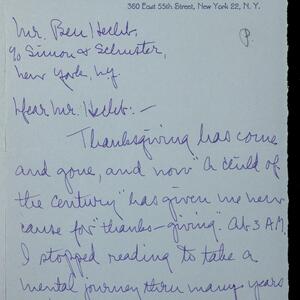 360 East 55th Street, New York 22, N. Y.
Mr. Ben Hecht,
℅ Simon & Schuster,
New York, N.Y.
Dear Mr. Hecht:-
Thanksgiving has come
and gone, and now "A child of
the Century" has given me new
cause for "thanks-giving". At 3 A.M.
I stopped reading to take a
mental journey thru many years